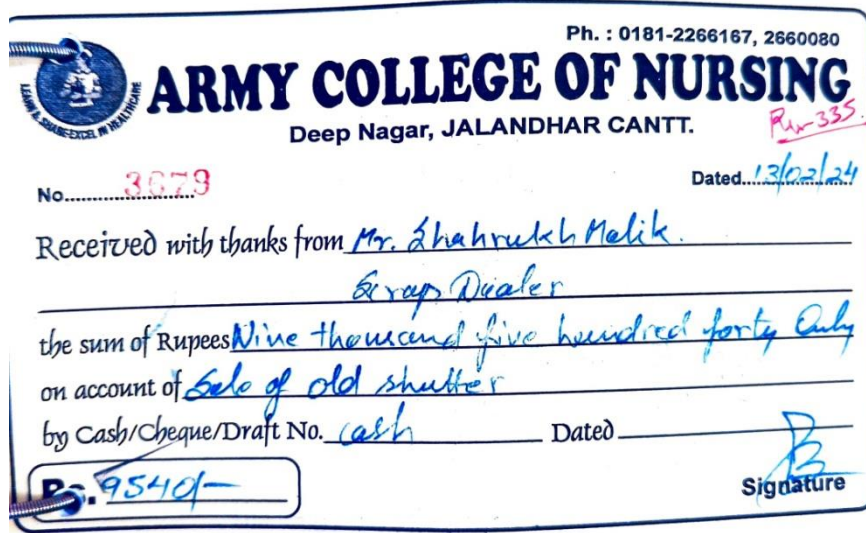 Ph. : 0181-2266167, 2660080
LEARN & SHARE EXCEL IN HEALTHCARE
ARMY COLLEGE OF NURSING
Deep Nagar, JALANDHAR CANTT.
No. 3679
Dated. 13/02/24
Received with thanks from Mr. Shahrukh Malik.
Scrap Dealer
the sum of Rupees Nine thousand five hundred forty Only
on account of Sale of old shutter
by Cash/Cheque/Draft No. cash Dated
Rs. 9540/-
Signature